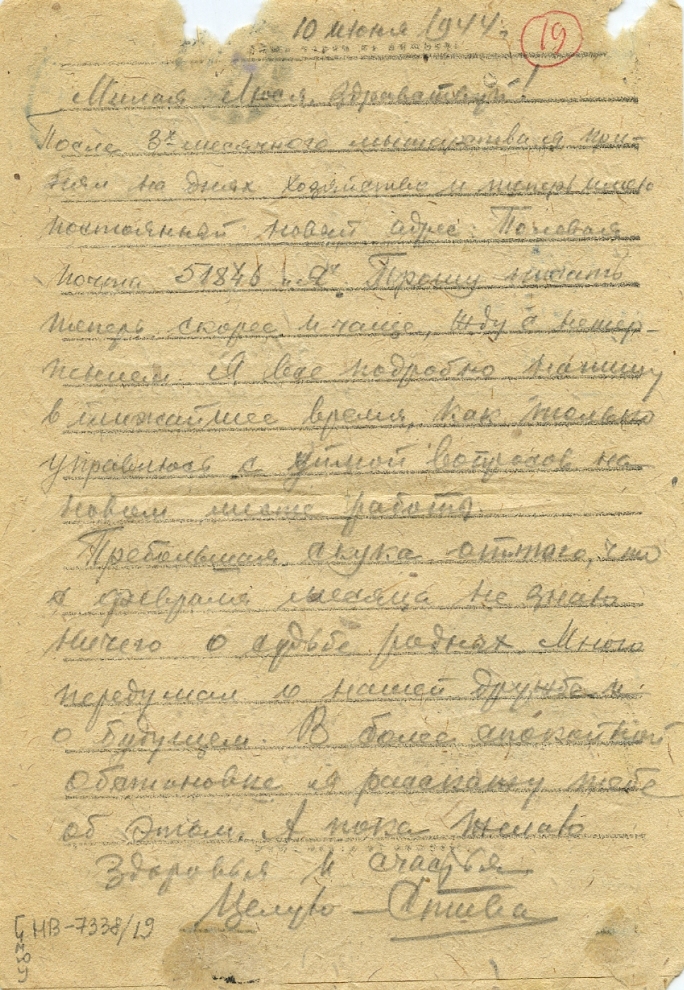 10 июня 1944 г.
19
Милая Люся, здравствуй!
После 3х месячного мытарства я при-
нял на днях хозяйство и теперь имею
постоянный новый адрес: Полевая
почта 51846 "Я". Прошу писать
теперь скорее и чаще, жду с нетер-
пением. Я все подробно напишу
в ближайшее время, как только
управлюсь с уймой вопросов на
новом месте работы.
Пребольшая скука оттого, что
с февраля месяца не знаю
ничего о судьбе родных. Много
передумал о нашей дружбе и
о будущем. В более спокойной
обстановке я расскажу тебе
об этом. А пока желаю
здоровья и счастья
Целую
НВ-7338/19